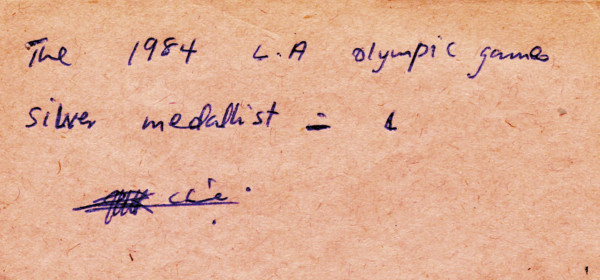 The 1984 L.A olympic games
silver medallist = 1